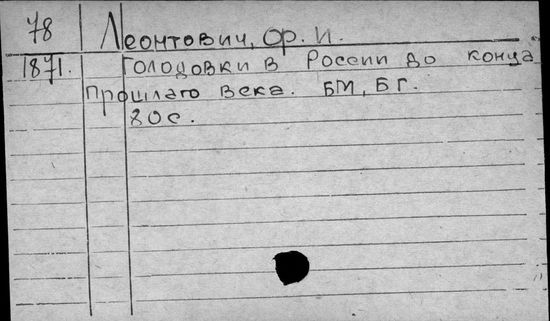 78 Леонтович, Ф. И.
1871. Голодовки в России до конца
прошлаго века. БМ, БГ.
80 с.